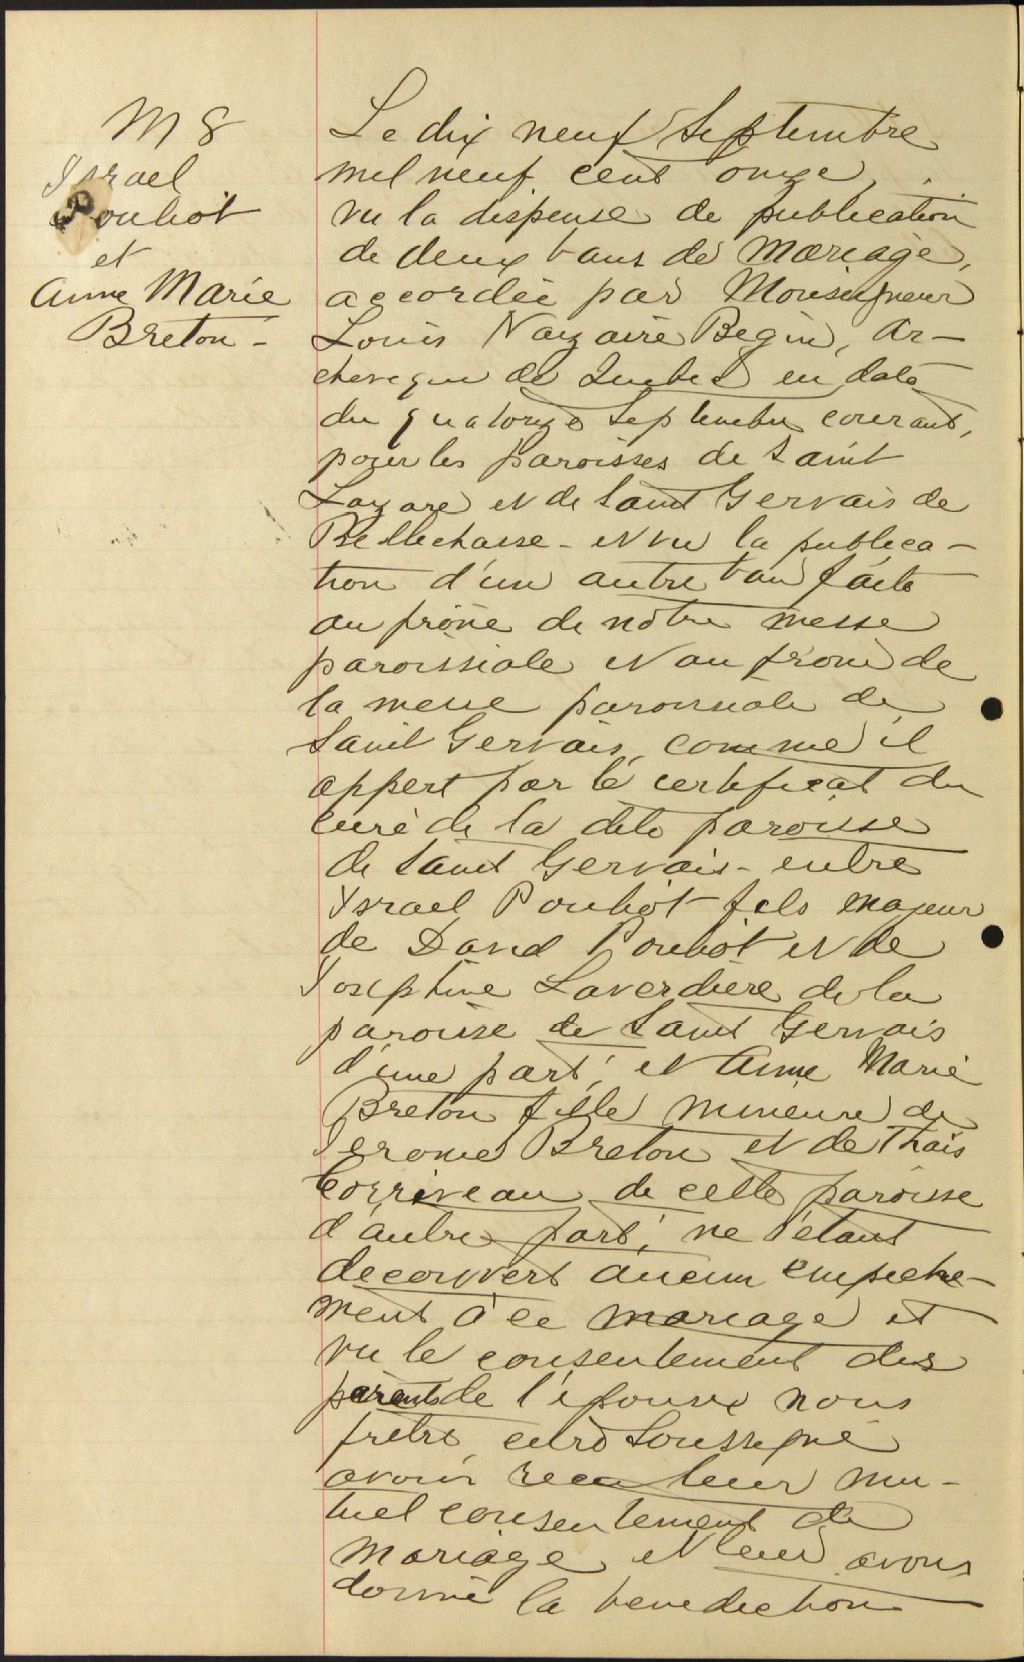 M 8
Israel
Pouliot
et
Anne Marie
Breton -
Le dix neuf Septembre
mil neuf cent onze,
vu la dispense de publication
de deux bans de mariage,
accordée par Monseigneur
Louis Nazaire Begin, Ar-
cheveque de Quebec en date
du quatorze Septembre courant,
pour les paroisses de Saint
Lazare et de Saint Gervais de
Bellechasse - et vu la publica-
tion d'un autre ban faite
au prône de notre messe
paroissiale et au prone de
la messe paroissiale de
Saint Gervais, comme il
appert par le certificat du
curé de la dite paroisse
de Saint Gervais - entre
Israel Pouliot fils majeur
de David Pouliot et de
Josephine Laverdière de la
paroisse de Saint Gervais
d'une part, et Anne Marie
Breton fille mineure de
Jerome Breton et de Thaïs
Corriveau de cette paroisse
d'autre part; ne s'étant
decouvert aucun empeche-
ment à ce mariage et
vu le consentement des
parents de l'épouse nous
prêtre, curé Soussigné
avons recu leur mu-
tuel consentement de
mariage et leur avons
donné la benediction